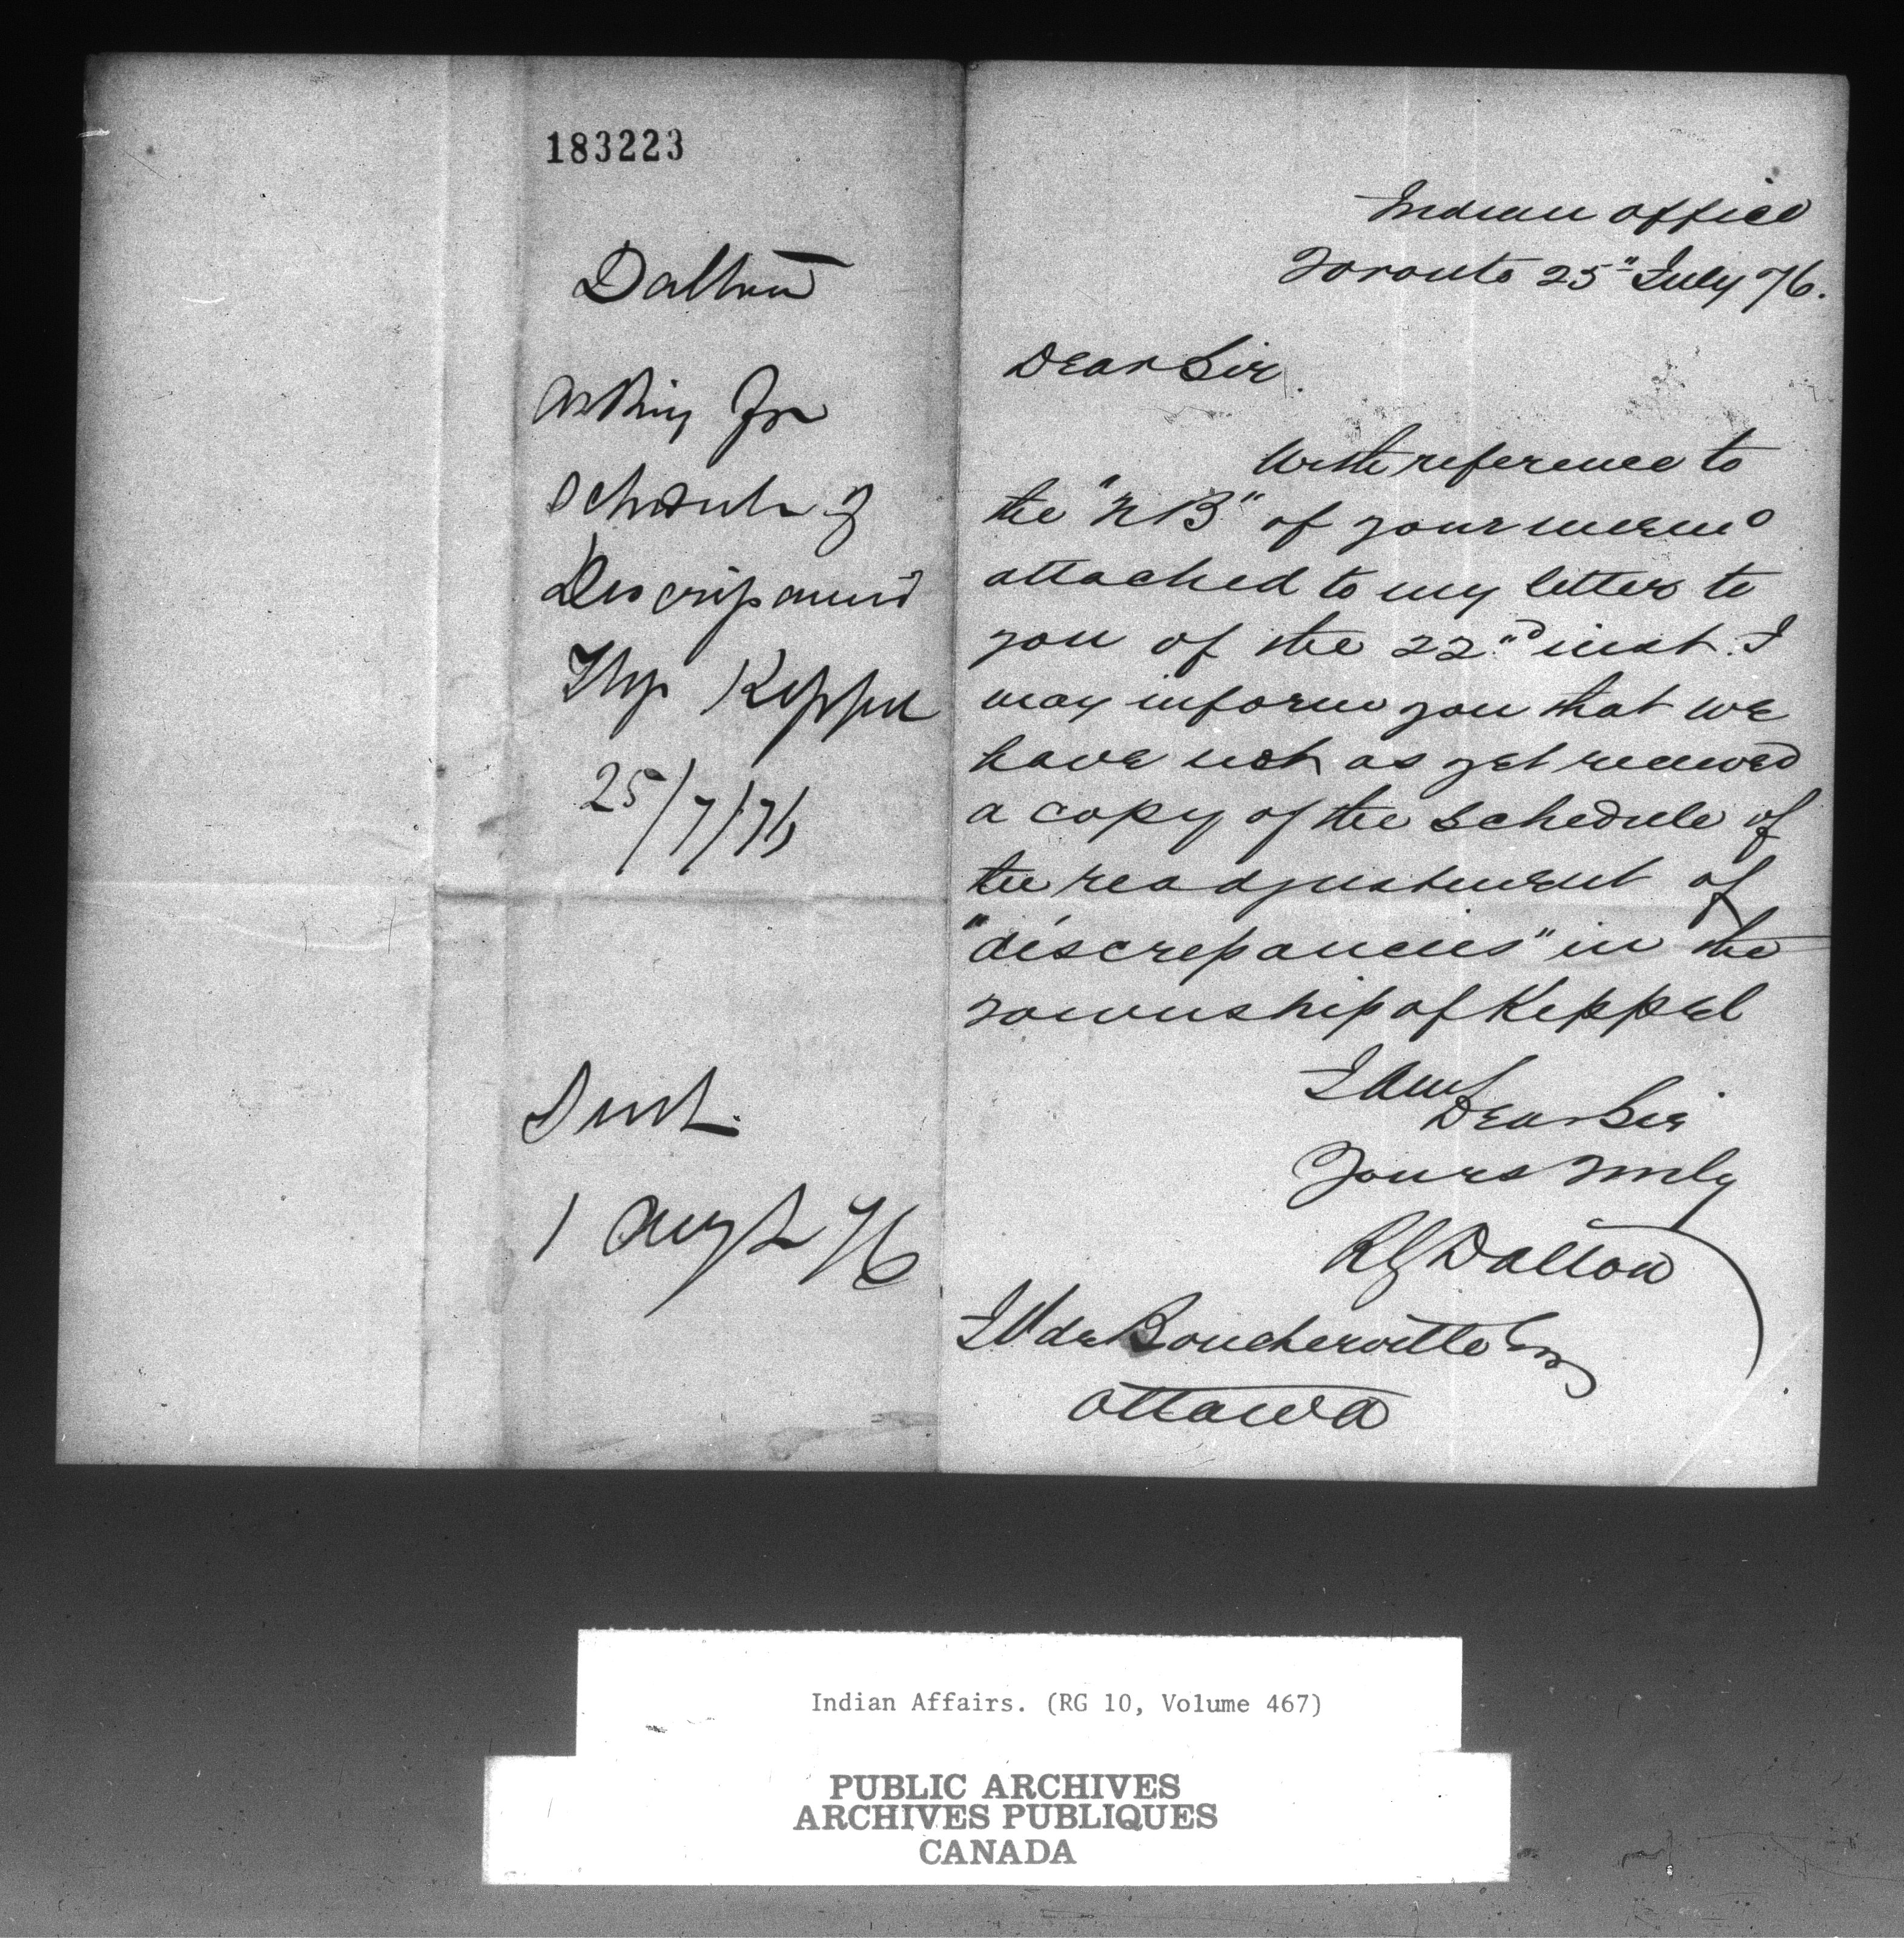 183223
Dalton
asking for
Schedule of
Twp Keppel
25/7/76
Sent.
1 Augt 76
Indian Office
Toronto 25" July 76.
Dear Sir
With reference to
the "NB" of your memo
attached to my letter to
you of the 22nd inst. I
may inform you that we
have not as yet received
a copy of the schedule of
the readjustment of
"discrepancies" in the
Township of Keppel
I am
Dear Sir
Yours Truly
RG Dalton
JV de Boucherville Esq
Ottawa
Indian Affairs. (RG 10, Volume 467)
PUBLIC ARCHIVES
ARCHIVES PUBLIQUES
CANADA